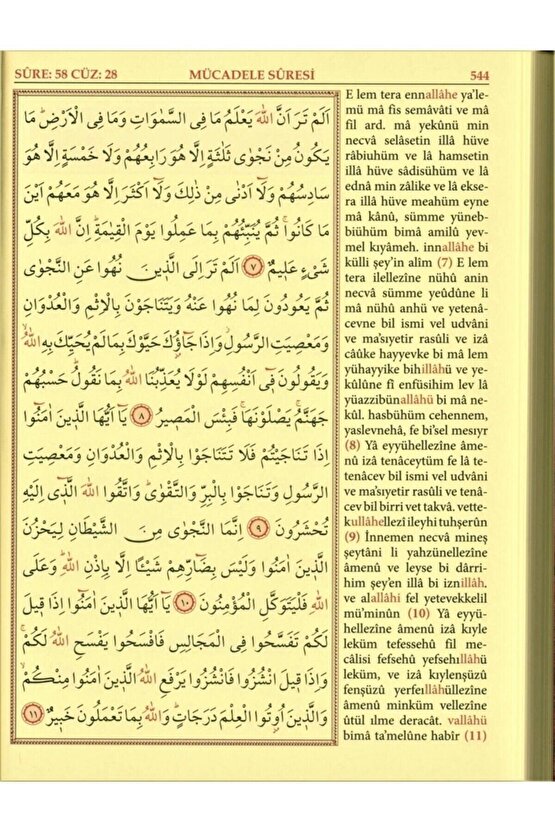 SÛRE: 58 CÜZ: 28 MÜCADELE SÛRESİ 544
اَلَمْ تَرَ اَنَّ اللّٰهَ يَعْلَمُ مَا فِي السَّمٰوَاتِ وَمَا فِي الْاَرْضِۜ مَا
يَكُونُ مِنْ نَجْوٰى ثَلٰثَةٍ اِلَّا هُوَ رَابِعُهُمْ وَلَا خَمْسَةٍ اِلَّا هُوَ
سَادِسُهُمْ وَلَٓا اَدْنٰى مِنْ ذٰلِكَ وَلَٓا اَكْثَرَ اِلَّا هُوَ مَعَهُمْ اَيْنَ
مَا كَانُواۚ ثُمَّ يُنَبِّئُهُمْ بِمَا عَمِلُوا يَوْمَ الْقِيٰمَةِۜ اِنَّ اللّٰهَ بِكُلِّ
شَيْءٍ عَلِيمٌ ﴿٧﴾ اَلَمْ تَرَ اِلَى الَّذِينَ نُهُوا عَنِ النَّجْوٰى
ثُمَّ يَعُودُونَ لِمَا نُهُوا عَنْهُ وَيَتَنَاجَوْنَ بِالْاِثْمِ وَالْعُدْوَانِ
وَمَعْصِيَتِ الرَّسُولِۘ وَاِذَا جَٓاؤُ۫كَ حَيَّوْكَ بِمَا لَمْ يُحَيِّكَ بِهِ اللّٰهُۙ
وَيَقُولُونَ فِٓي اَنْفُسِهِمْ لَوْلَا يُعَذِّبُنَا اللّٰهُ بِمَا نَقُولُۜ حَسْبُهُمْ
جَهَنَّمُۚ يَصْلَوْنَهَاۚ فَبِئْسَ الْمَصِيرُ ﴿٨﴾ يَٓا اَيُّهَا الَّذِينَ اٰمَنُٓوا
اِذَا تَنَاجَيْتُمْ فَلَا تَتَنَاجَوْا بِالْاِثْمِ وَالْعُدْوَانِ وَمَعْصِيَتِ
الرَّسُولِ وَتَنَاجَوْا بِالْبِرِّ وَالتَّقْوٰىۜ وَاتَّقُوا اللّٰهَ الَّذِٓي اِلَيْهِ
تُحْشَرُونَ ﴿٩﴾ اِنَّمَا النَّجْوٰى مِنَ الشَّيْطَانِ لِيَحْزُنَ
الَّذِينَ اٰمَنُوا وَلَيْسَ بِضَٓارِّهِمْ شَيْـًٔا اِلَّا بِاِذْنِ اللّٰهِۜ وَعَلَى
اللّٰهِ فَلْيَتَوَكَّلِ الْمُؤْمِنُونَ ﴿١٠﴾ يَٓا اَيُّهَا الَّذِينَ اٰمَنُٓوا اِذَا قِيلَ
لَكُمْ تَفَسَّحُوا فِي الْمَجَالِسِ فَافْسَحُوا يَفْسَحِ اللّٰهُ لَكُمْۚ
وَاِذَا قِيلَ انْشُزُوا فَانْشُزُوا يَرْفَعِ اللّٰهُ الَّذِينَ اٰمَنُوا مِنْكُمْۙ
وَالَّذِينَ اُو۫تُوا الْعِلْمَ دَرَجَاتٍۜ وَاللّٰهُ بِمَا تَعْمَلُونَ خَبِيرٌ ﴿١١﴾
E lem tera ennallâhe ya'le-
mü mâ fis semâvâti ve mâ
fil ard. mâ yekûnü min
necvâ selâsetin illâ hüve
râbiuhüm ve lâ hamsetin
illâ hüve sâdisühüm ve lâ
ednâ min zâlike ve lâ ekse-
ra illâ hüve meahüm eyne
mâ kânû, sümme yüneb-
biühüm bimâ amilû yev-
mel kıyâmeh. innallâhe bi
külli şey'in alîm (7) E lem
tera ilellezîne nühû anin
necvâ sümme yeûdûne li
mâ nühû anhü ve yetenâ-
cevne bil ismi vel udvâni
ve ma'sıyetir rasûli ve izâ
câûke hayyevke bi mâ lem
yühayyike bihillâhü ve ye-
kûlûne fî enfüsihim lev lâ
yüazzibünallâhü bi mâ ne-
kûl. hasbühüm cehennem,
yaslevnehâ, fe bi'sel mesıyr
(8) Yâ eyyühellezîne âme-
nû izâ tenâceytüm fe lâ te-
tenâcev bil ismi vel udvâni
ve ma'sıyetir rasûli ve tenâ-
cev bil birri vet takvâ. vette-
kullâhellezî ileyhi tuhşerûn
(9) İnnemen necvâ mineş
şeytâni li yahzünellezîne
âmenû ve leyse bi dârri-
him şey'en illâ bi iznillâh.
ve alallâhi fel yetevekkelil
mü'minûn (10) Yâ eyyü-
hellezîne âmenû izâ kıyle
leküm tefessehû fil me-
câlisi fefsehû yefsehıllâhü
leküm, ve izâ kıylenşüzû
fenşüzû yerfeıllâhüllezîne
âmenû minküm vellezîne
ûtül ılme deracât. vallâhü
bimâ ta'melûne habîr (11)